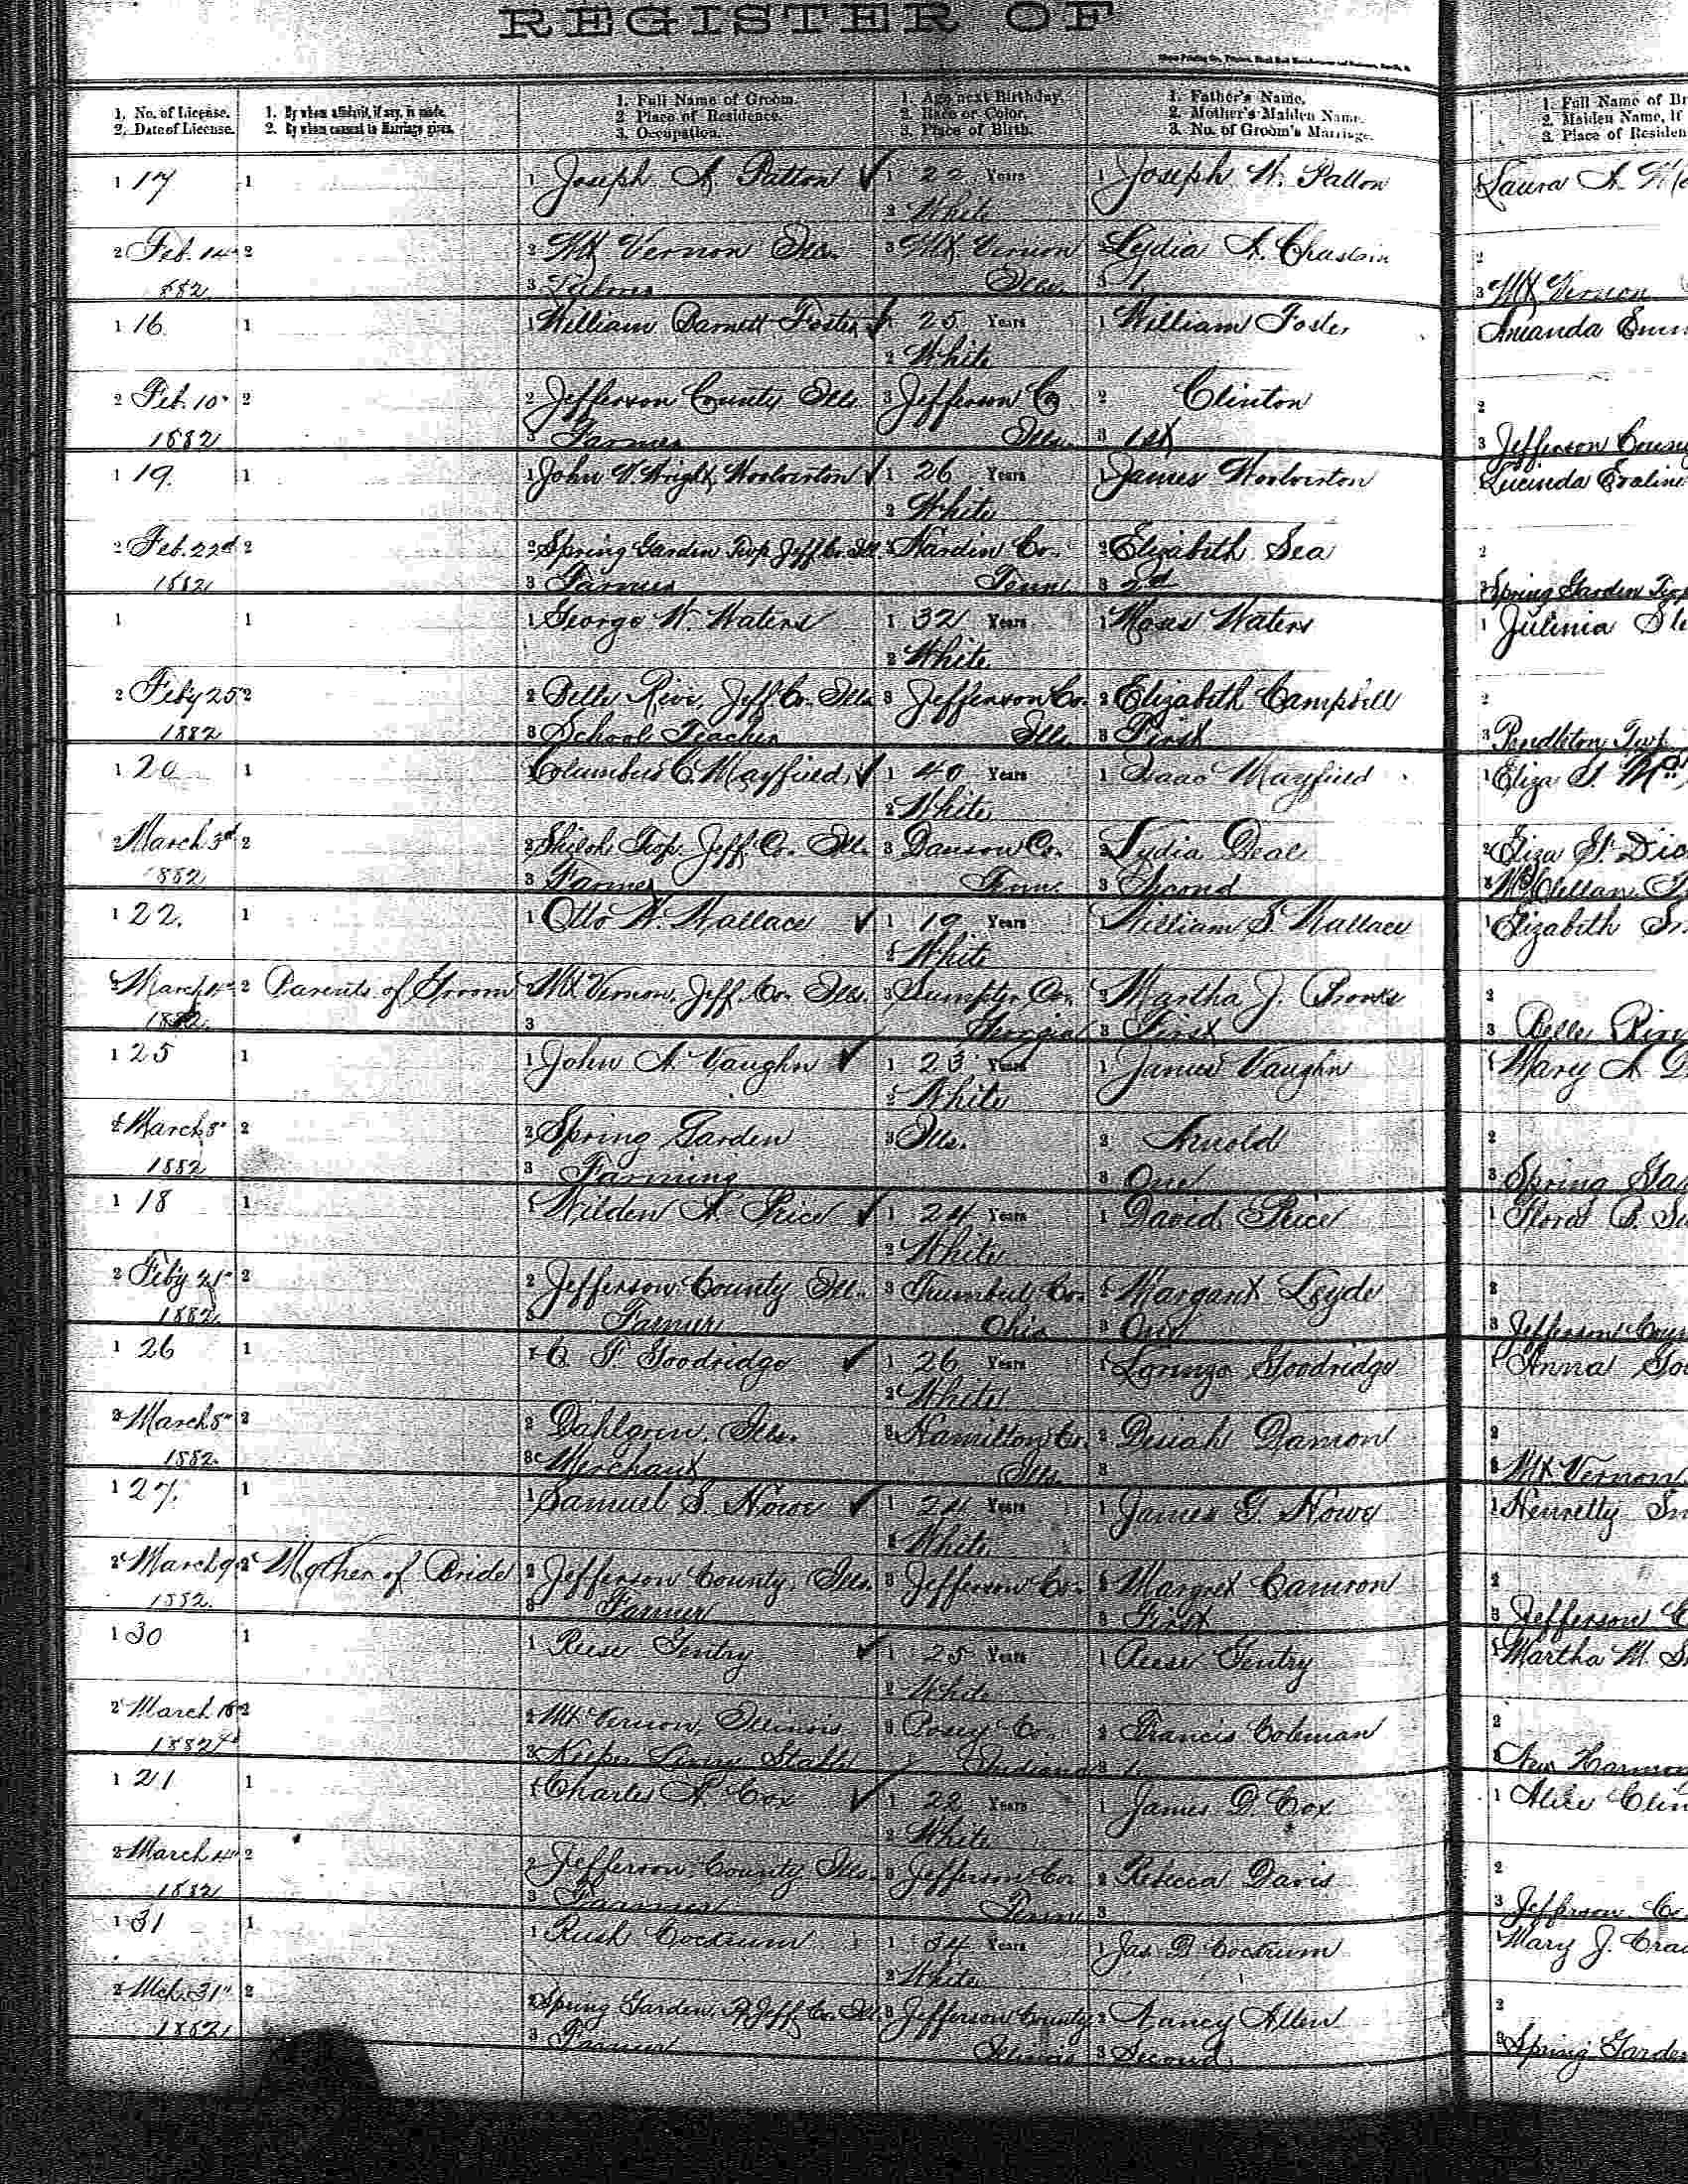 REGISTER OF
1. No. of License. 1. By whom affidavit, if any, is made. 1. Full Name of Groom. 1. Age next Birthday. 1. Father's Name. 1. Full Name of Br
2. Date of License. 2. By whom consent to Marriage given. 2. Place of Residence. 2. Race or Color. 2. Mother's Maiden Name. 2. Maiden Name, If
3. Occupation. 3. Place of Birth. 3. No. of Groom's Marriage. 3. Place of Residen
1 17 1 1 Joseph A. Patton ✓ 1 22 Years 1 Joseph W. Patton Laura A.
2 White
2 Feb. 14 2 2 Mt Vernon Ills. 3 Mt Vernon Lydia A. Chastain 2
882 3 Ills. 3 1 3 Mt Vernon
1 16 1 1 William Barnett Foster ✓ 1 25 Years 1 William Foster Amanda
2 White
2 Feb. 10" 2 2 Jefferson County Ills. 3 Jefferson Co 2 Clinton 2
1882 3 Farmer Ills. 3 1st 3 Jefferson Coun
1 19. 1 1 John V. Wright Woolverton ✓ 1 26 Years 1 James Woolverton Lucinda Evaline
2 White
2 Feb. 22d 2 2 Spring Garden Twp Jeff Co. Ill. 3 Hardin Co. 2 Elizabeth Sea 2
1882 3 Farmer Tenn. 3 2d 3 Spring Garden Twp
1 1 1 George W. Waters 1 32 Years 1 Moses Waters 1 Julinia
2 White
2 Feby 25 2 2 Belle Rive, Jeff Co. Ills. 3 Jefferson Co. 2 Elizabeth Campbell 2
1882 3 School Teacher Ills. 3 First 3 Pendleton Twp
1 20 1 Columbus C. Mayfield ✓ 1 40 Years 1 Isaac Mayfield 1 Eliza
2 White
2 March 3d 2 2 Shiloh Twp. Jeff Co. Ill. 3 Co. 2 Lydia Deal 2 Eliza
1882 3 Farmer 3 Second 3 McClellan
1 22. 1 1 Otto W. Wallace ✓ 1 19 Years 1 William S. Wallace 1 Elizabeth
2 White
2 March 2 Parents of Groom 2 Mt Vernon, Jeff. Co. Ills. 3 Sumpter Co. 2 Martha J. 2
1882 3 Georgia 3 First 3 Belle Rive
1 25 1 1 John A. Vaughn ✓ 1 23 Years 1 James Vaughn 1 Mary A
2 White
2 March 8" 2 2 Spring Garden 3 Ills. 2 Arnold 2
1882 3 Farming 3 One 3 Spring Gar
1 18 1 1 Wilden A. Price ✓ 1 24 Years 1 David Price 1 Flora B.
2 White
2 Feby 21" 2 2 Jefferson County Ill. 3 Trumbull Co. 2 Margaret Leyde 2
1882 3 Farmer Ohio 3 One 3 Jefferson Coun
1 26 1 1 C. F. Goodridge ✓ 1 26 Years 1 Lorenzo Goodridge 1 Anna
2 White
2 March 8" 2 2 Dahlgren, Ills. 3 Hamilton Co. 2 Damon 2
1882. 3 Merchant Ills. 3 3 Mt Vernon
1 27. 1 1 Samuel S. Howe ✓ 1 24 Years 1 James G. Howe 1
2 White
2 March 9" 2 Mother of Bride 2 Jefferson County, Ills. 3 Jefferson Co. 2 Margret Camron 2
1882. 3 Farmer 3 First 3 Jefferson C
1 30 1 1 Reese Gentry ✓ 1 25 Years 1 Reese Gentry 1 Martha M.
2 White
2 March 18 2 2 Mt Vernon, Illinois 3 Posey Co. 2 Francis Coleman 2
1882 3 Keeper Livery Stable Indiana 3 1 3 New Harmony
1 21 1 1 Charles A. Cox ✓ 1 22 Years 1 James D Cox 1 Alice Clin
2 White
2 March 4" 2 2 Jefferson County Ills. 3 Jefferson Co 2 Rebecca Davis 2
1882 3 Farmer 3 3 Jefferson Co.
1 31 1 1 Rush Cockrum 1 34 Years 1 Jas D Cockrum Mary J.
2 White
2 Mch. 31" 2 2 Spring Garden, Jeff. Co. Ill. 3 Jefferson County 2 Nancy Allen 2
1882 3 Farmer Illinois 3 Second 3 Spring Garden